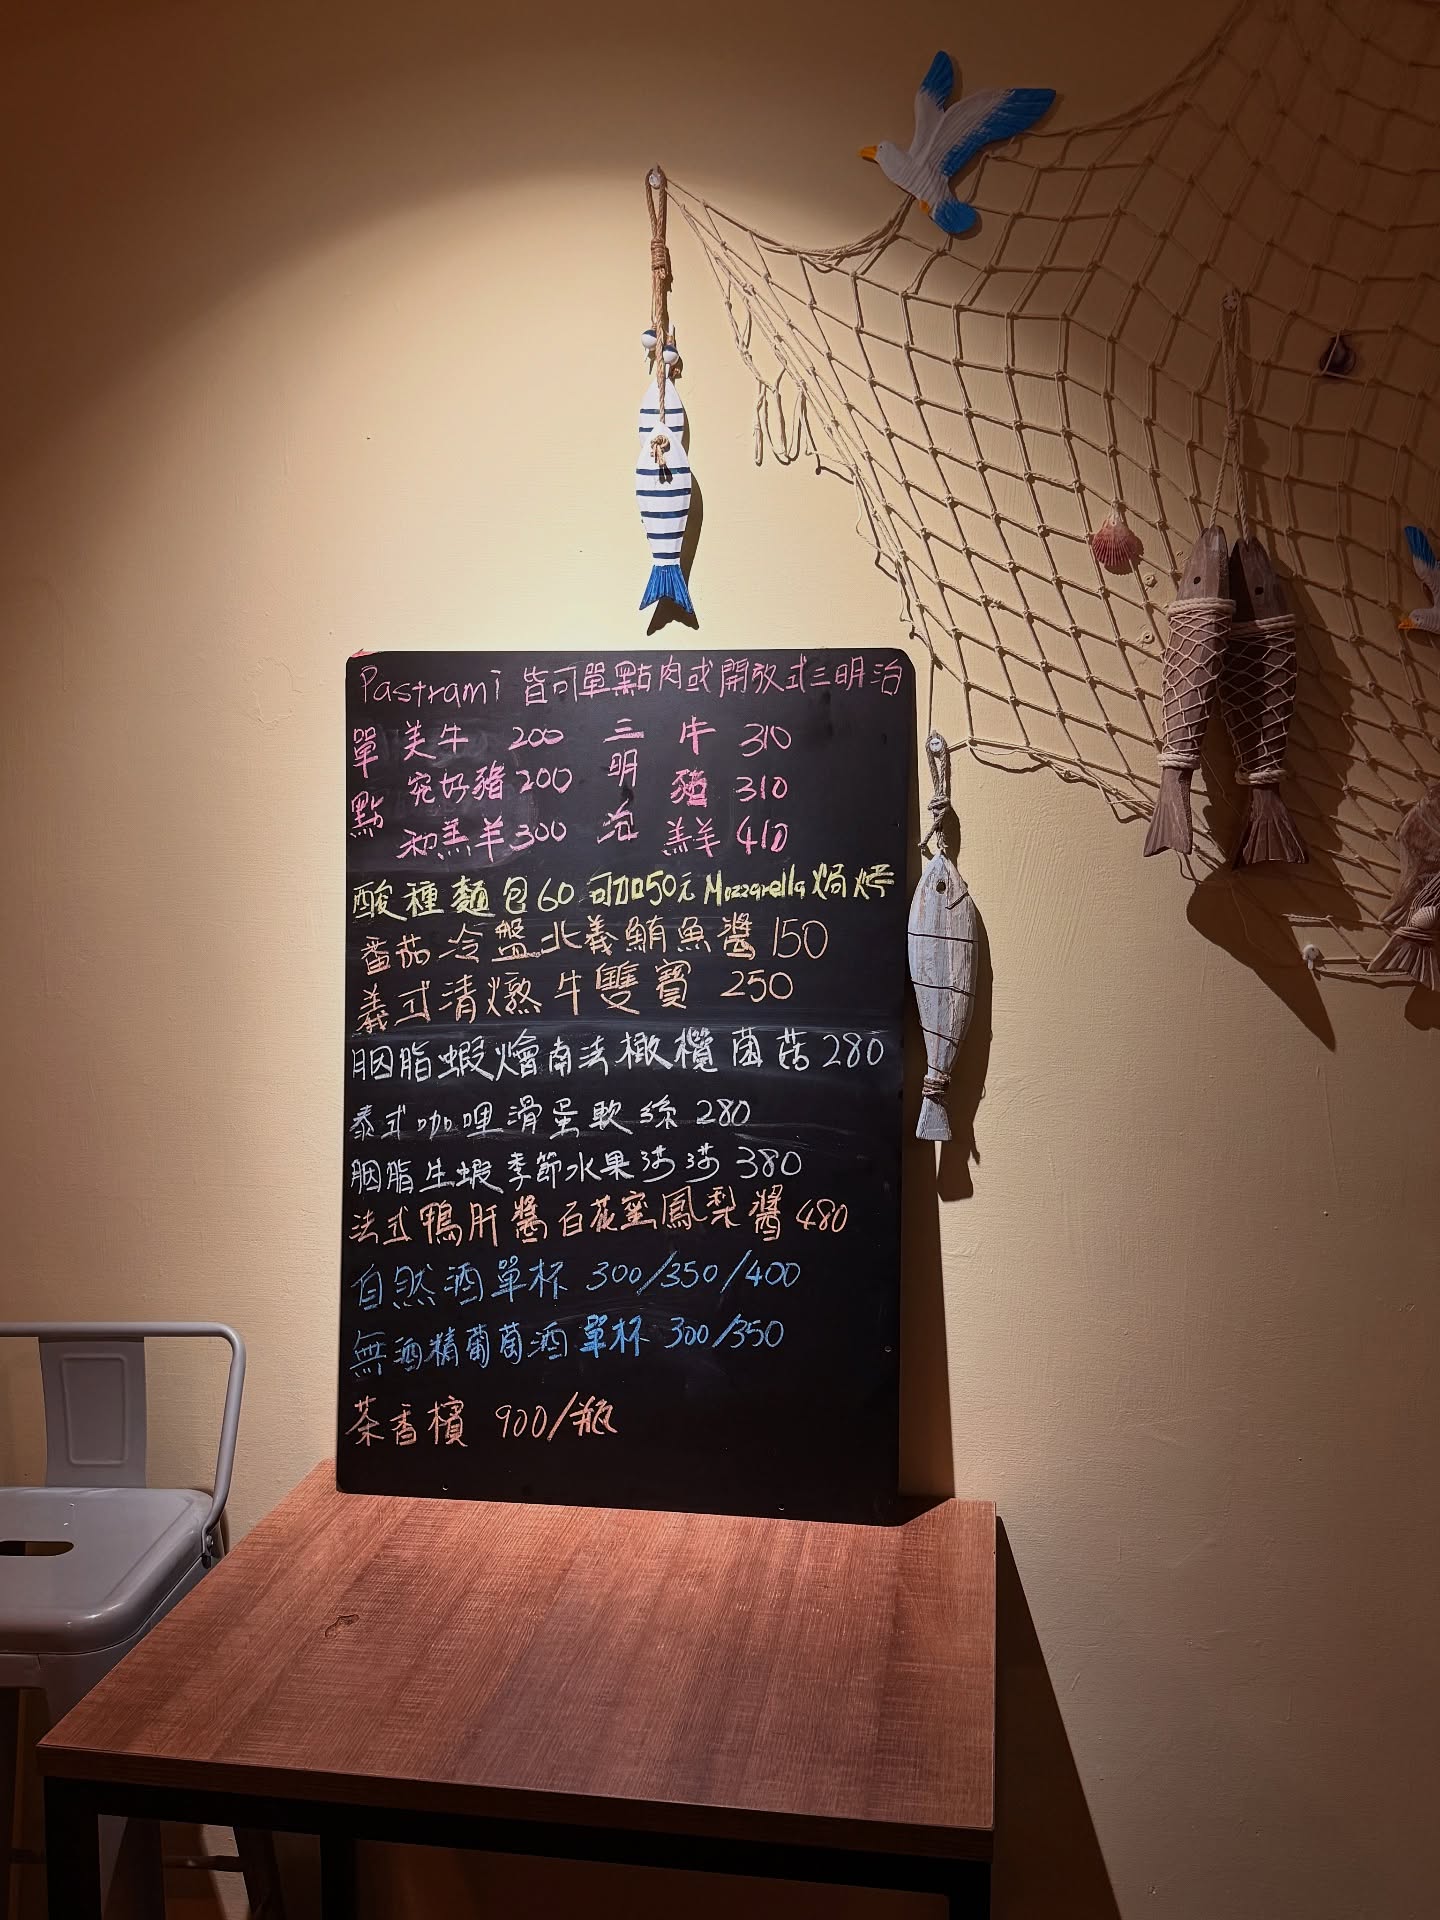 Pastrami 皆可單點肉或開放式三明治
單點 美牛 200 三明治 牛 310
究好豬 200 豬 310
和羔羊 300 羔羊 410
酸種麵包60 可加50元 Mozzarella 焗烤
番茄冷盤北義鮪魚醬 150
義式清燉牛雙寶 250
胭脂蝦燴南法橄欖菌菇 280
泰式咖哩滑蛋軟絲 280
胭脂生蝦季節水果莎莎 380
法式鴨肝醬百花蜜鳳梨醬 480
自然酒單杯 300/350/400
無酒精葡萄酒單杯 300/350
茶香檳 900/瓶